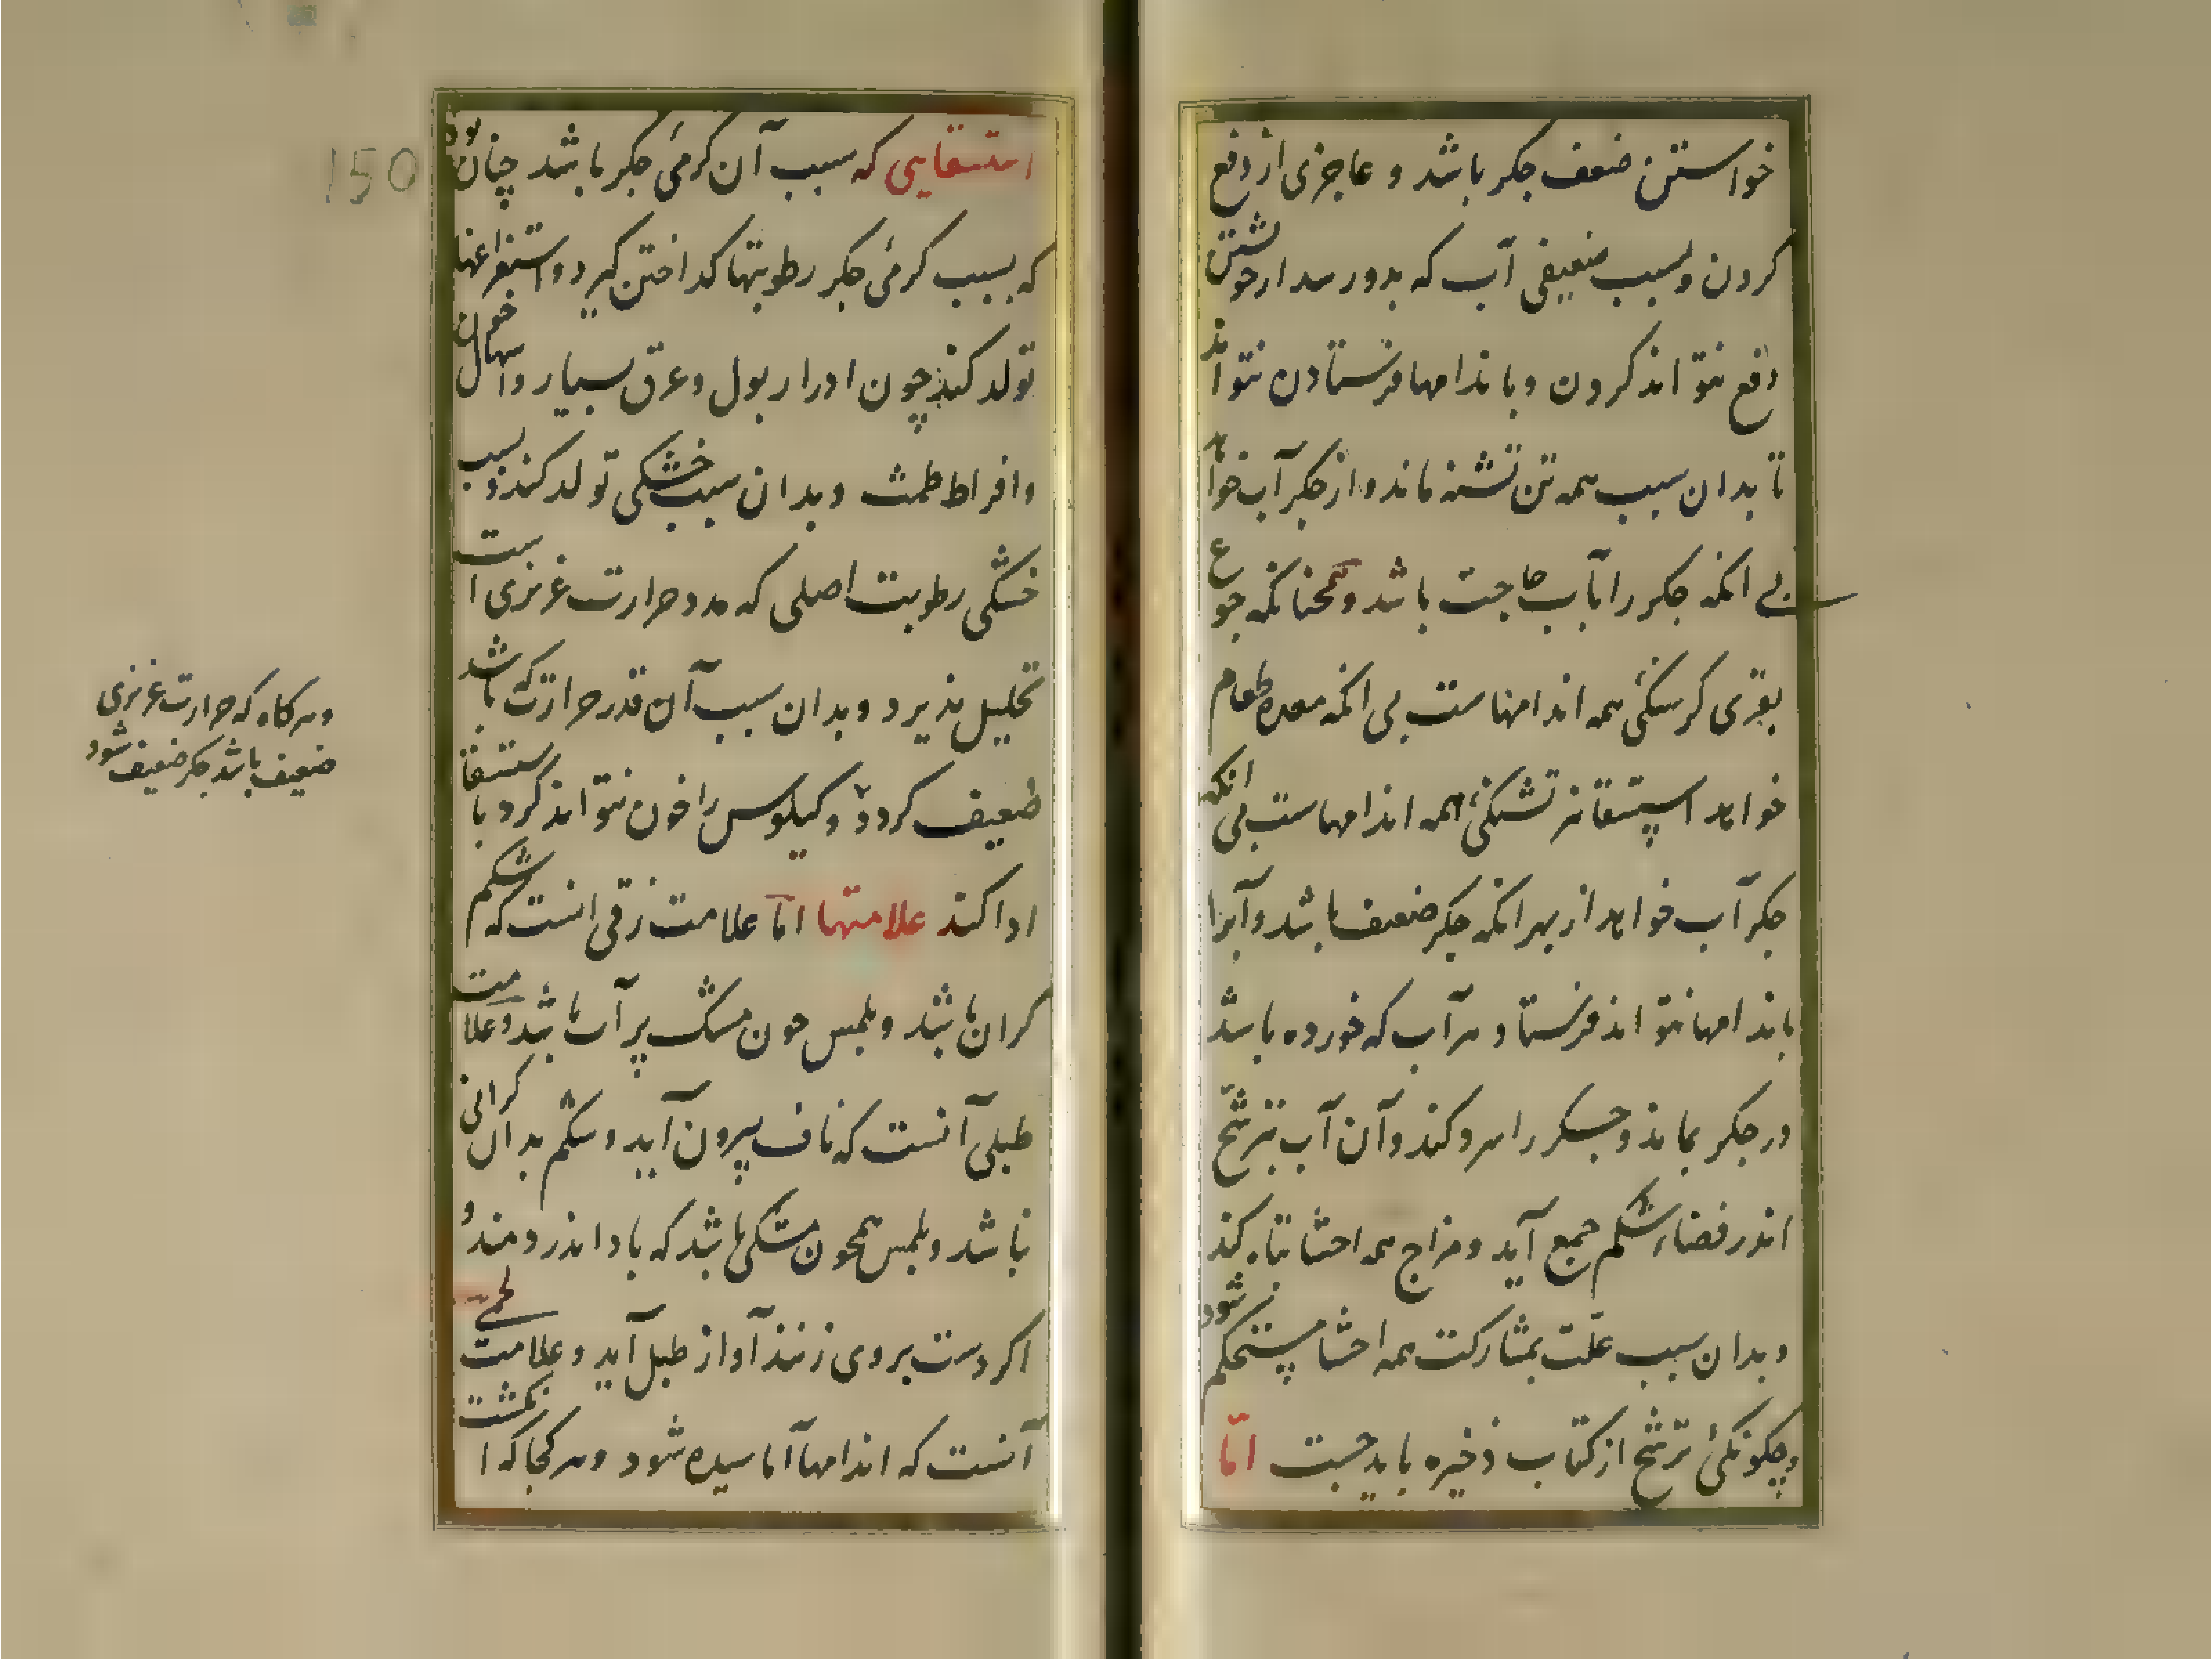 خواستن ضعف جکر باشد و عاجزی از دفع
کردن و بسبب ضعیفی آب که بدو رسد از خویشتن
دفع نتواند کردن و باندامها فرستادن نتواند
تا بدان سبب همه تن تشنه ماند و از جکر آب خواهد
بی انکه جکر را بآب حاجت باشد و همچنانکه جوع
بقری کرسنکیٔ همه اندامهاست بی انکه معده طعام
خواهد استسقا نیز تشنکیٔ همه اندامهاست بی انکه
جکر آب خواهد از بهر انکه جکر ضعیف باشد و آبرا
باندامها نتواند فرستاد و هر آب که خورده باشد
در جکر بماند و جکر را سرد کند و آن آب بترشّح
اندر فضاء شکم جمع آید و مزاج همه احشا تباه کند
و بدان سبب علّت بمشارکت همه احشا مستحکم شود
و چکونکیٔ ترشّح از کتاب ذخیره باید جست امّا
استسقایی که سبب آن کرمیٔ جکر باشد چنان بود
که بسبب کرمیٔ جکر رطوبتها کداختن کیرد و استفراغها
تولد کند چون ادرار بول و عرق بسیار و اسهال خون
و افراط طمث و بدان سبب خشکی تولد کند و بسبب
خشکی رطوبت اصلی که مدد حرارت غریزی است
تحلیل پذیرد و بدان سبب آن قدر حرارت که باشد
ضعیف کردد و کیلوس را خون نتواند کرد باستسقا
ادا کند علامتها امّا علامت زقی انست که شکم
کران باشد و بلمس چون مشک پر آب باشد و علامت
طبلی آنست که ناف بیرون آید و شکم بدان کرانی
نباشد و بلمس همچون مشکی باشد که باد اندر دمند و
اکر دست بر وی زنند آواز طبل آید و علامت لحمی
آنست که اندامها آماسیده شود و هر کجا که انکشت
و هر کاه که حرارت غریزی
ضعیف باشد جکر ضعیف شود
150